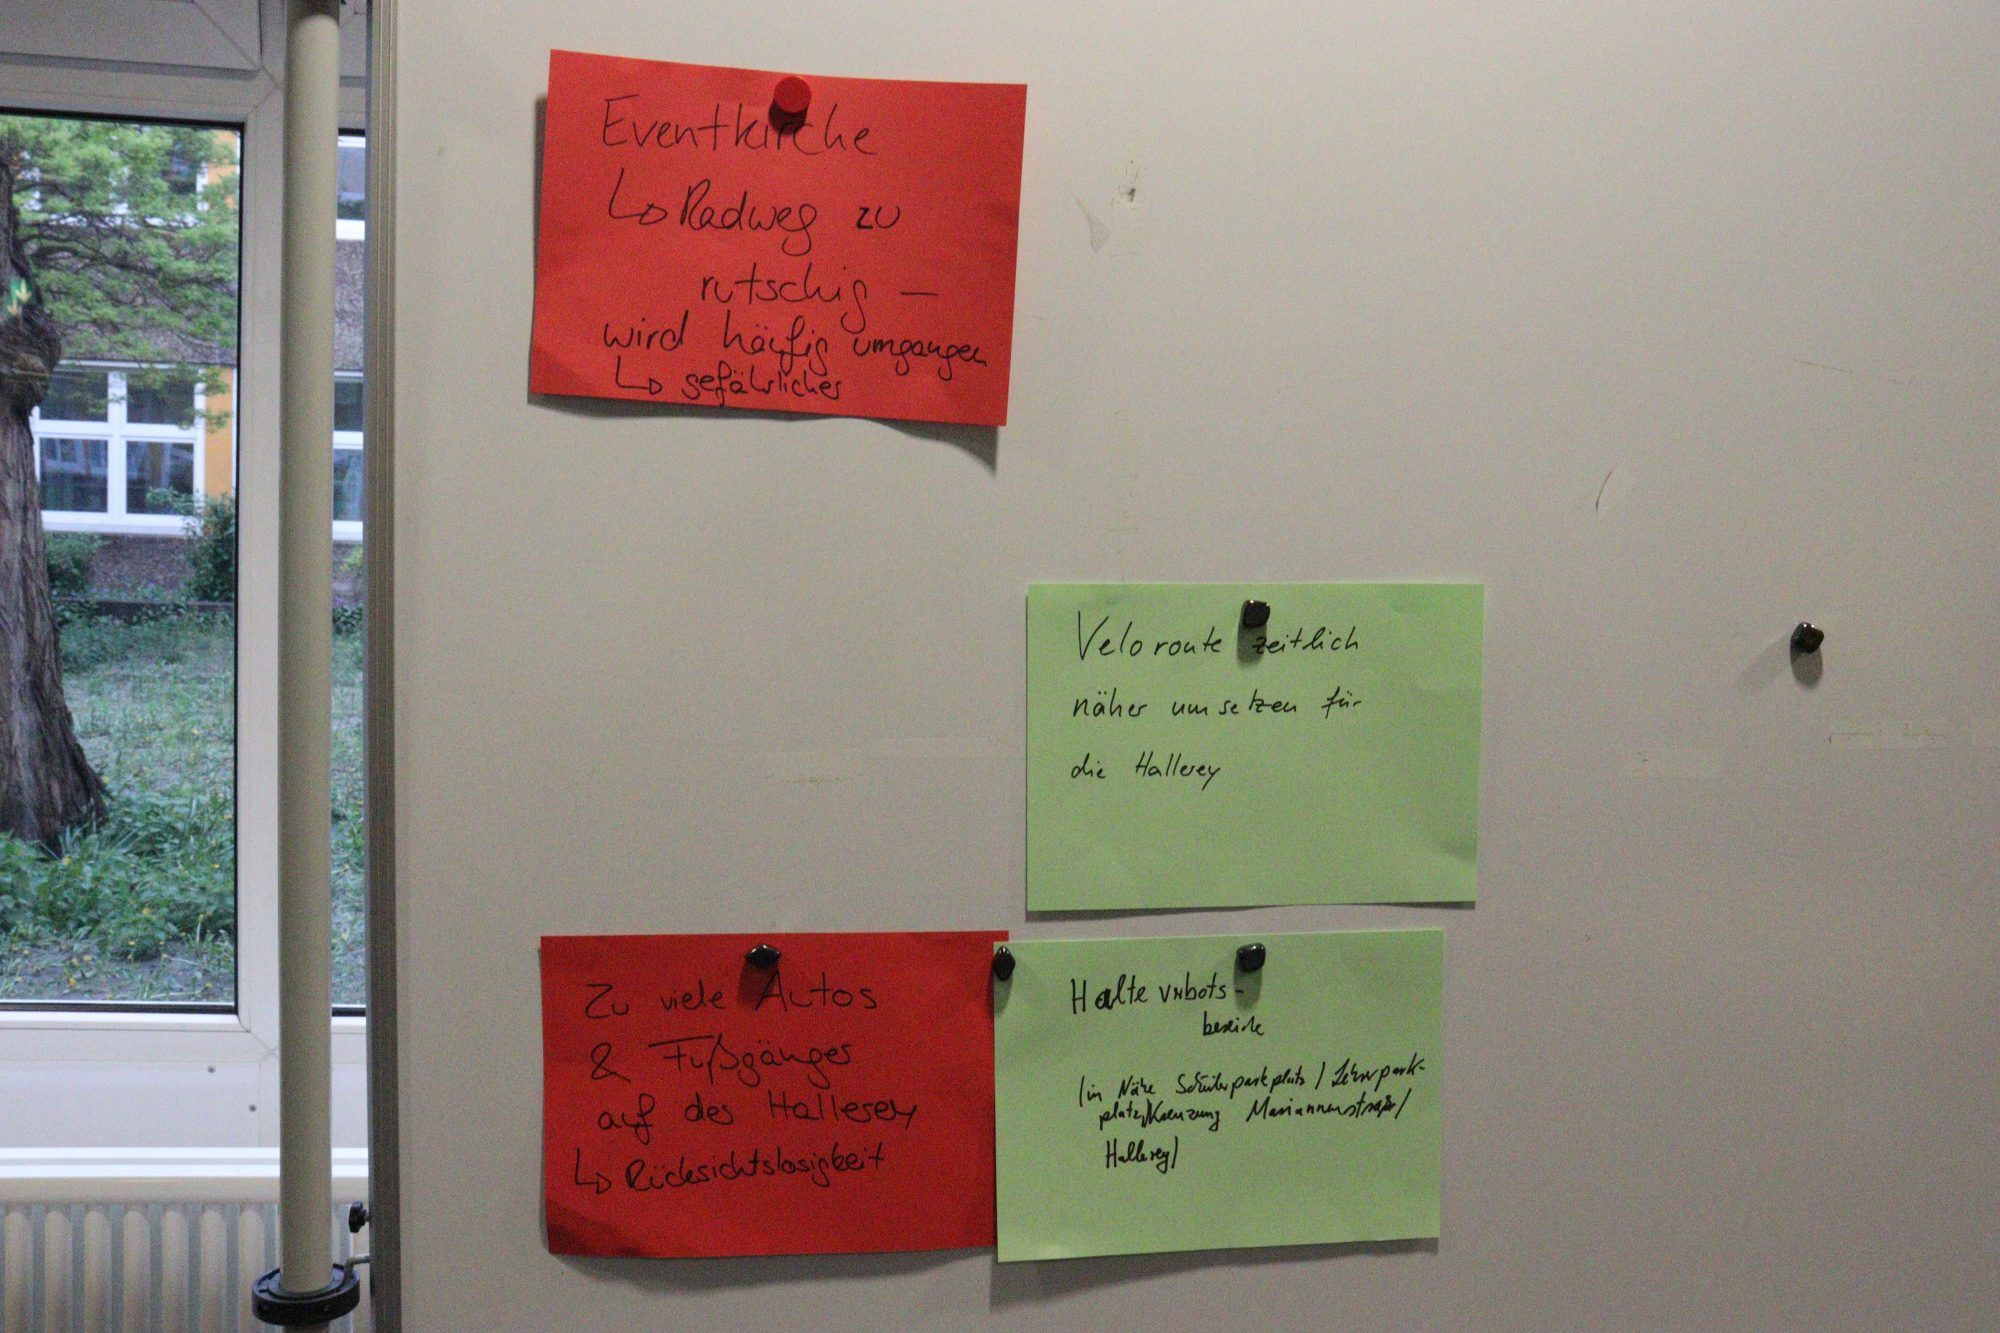 Eventkirche
↳ Radweg zu
rutschig —
wird häufig umgangen
↳ gefährlicher
Veloroute zeitlich
näher umsetzen für
die Hallerey
Zu viele Autos
& Fußgänger
auf der Hallerey
↳ Rücksichtslosigkeit
Halteverbots-
bereiche
(in Nähe Schülerparkplatz / Lehrerpark-
platz/Kreuzung Mariannenstraße/
Hallerey)